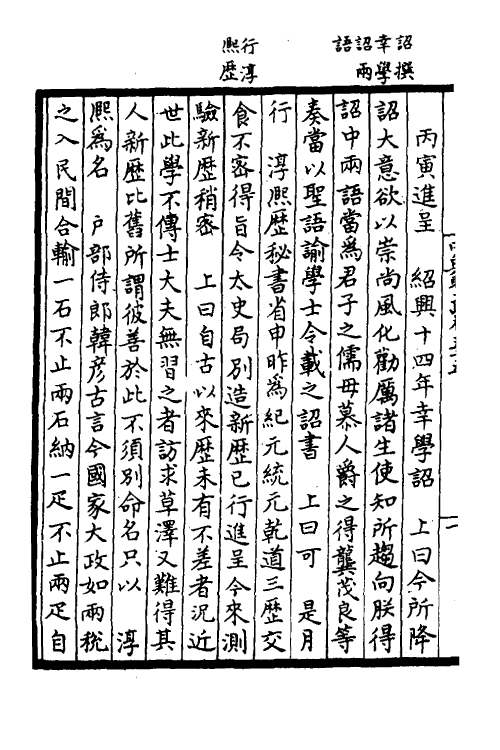 詔撰
幸學
詔兩
語
行淳
熙歷
丙寅進呈　紹興十四年幸學詔　上曰今所降
詔大意欲以崇尚風化勸厲諸生使知所趨向朕得
詔中兩語當爲君子之儒毋慕人爵之得龔茂良等
奏當以聖語諭學士令載之詔書　上曰可　是月
行　淳熙歷秘書省申昨爲紀元統元乾道三歷交
食不密得旨令太史局別造新歷已行進呈今來測
驗新歷稍密　上曰自古以來歷未有不差者況近
世此學不傳士大夫無習之者訪求草澤又難得其
人新歷比舊所謂彼善於此不須別命名只以　淳
熙爲名　戶部侍郎韓彥古言今國家大政如兩稅
之入民間合輸一石不止兩石納一疋不止兩疋自